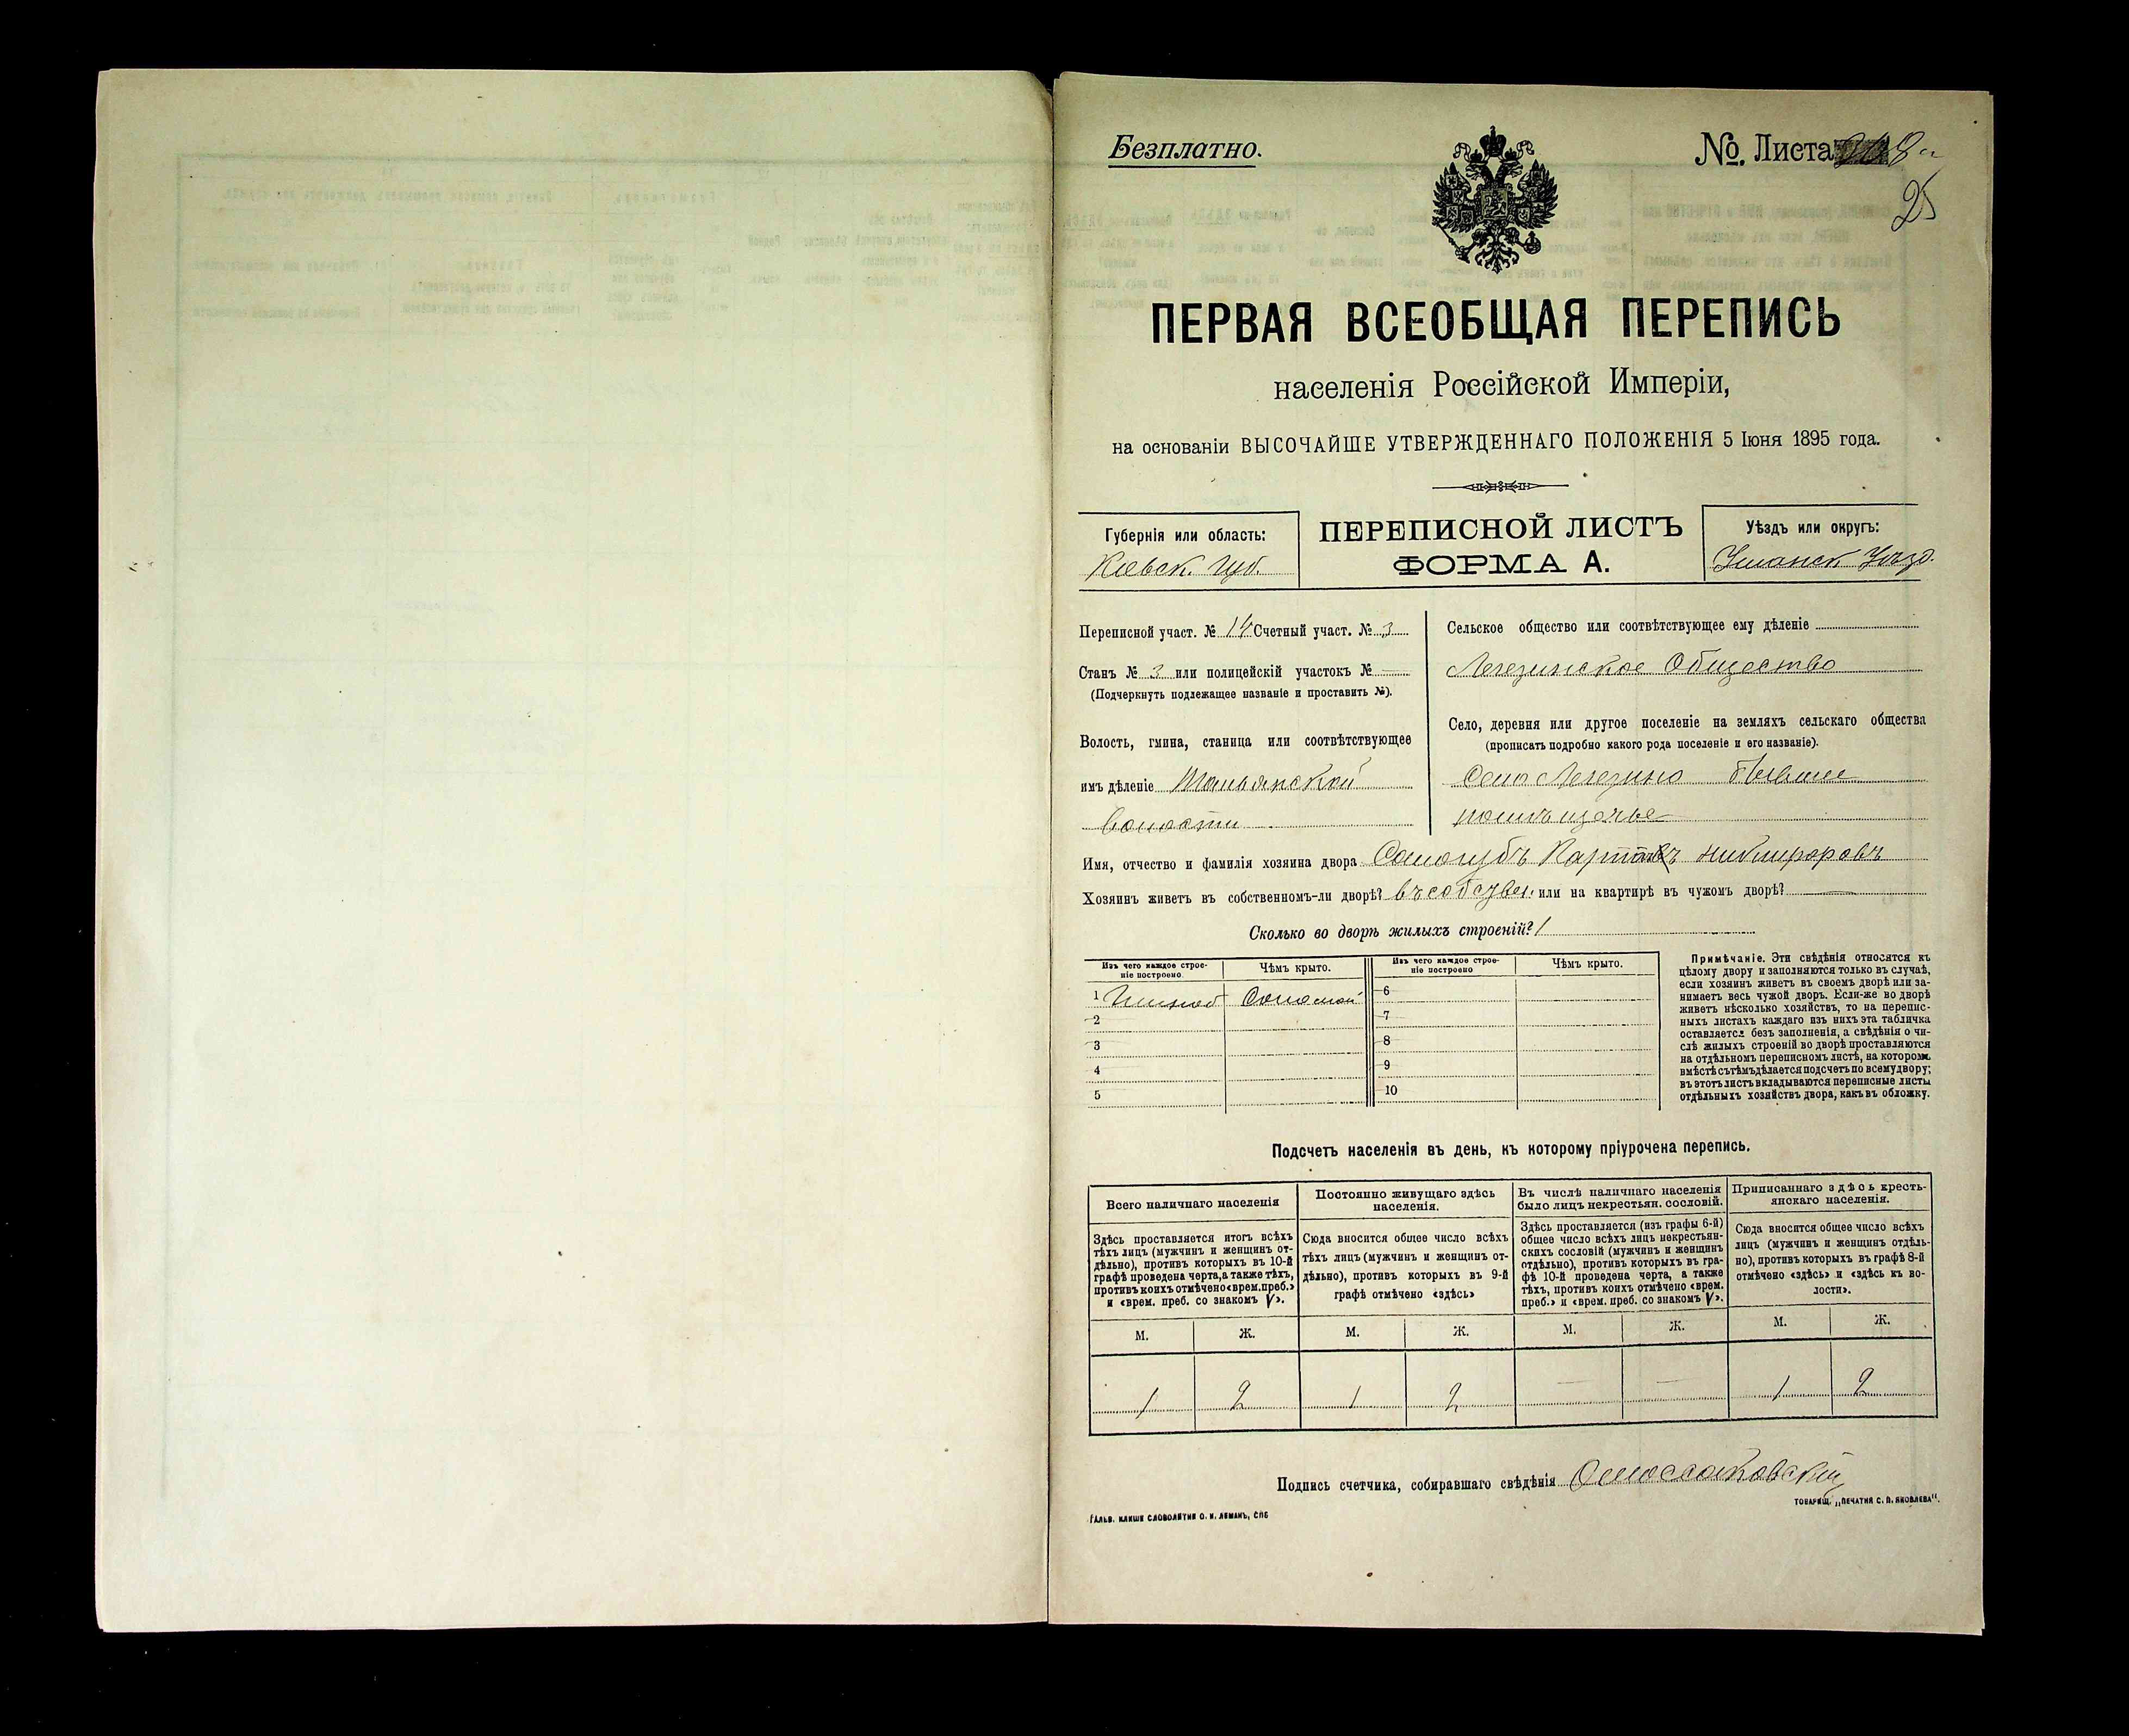 Безплатно.
№. Листа
25
ПЕРВАЯ ВСЕОБЩАЯ ПЕРЕПИСЬ
населенія Россійской Имперіи,
на основаніи ВЫСОЧАЙШЕ УТВЕРЖДЕННАГО ПОЛОЖЕНІЯ 5 Іюня 1895 года.
Губернія или область:
Кіевск. Губ.
ПЕРЕПИСНОЙ ЛИСТЪ
ФОРМА А.
Уѣздъ или округъ:
Уманск Уѣзд.
Переписной участ. № 14 Счетный участ. № 3
Станъ № 3 или полицейскій участокъ № —
(Подчеркнуть подлежащее названіе и проставить №).
Волость, гмина, станица или соотвѣтствующее
имъ дѣленіе Тальянской
Волости
Сельское общество или соотвѣтствующее ему дѣленіе
Легезинское Общество
Село, деревня или другое поселеніе на земляхъ сельскаго общества
(прописать подробно какого рода поселеніе и его названіе).
Село Легезино бывшие
помѣщечье
Имя, отчество и фамилія хозяина двора Сологубъ никифоровъ
Хозяинъ живетъ въ собственномъ-ли дворѣ? въ собствен. или на квартирѣ въ чужомъ дворѣ? —
Сколько во дворѣ жилыхъ строеній? 1
Изъ чего каждое строе-
ніе построено.
Чѣмъ крыто.
Изъ чего каждое строе-
ніе построено
Чѣмъ крыто.
1 Соломой 6
2 7
3 8
4 9
5 10
Примѣчаніе. Эти свѣдѣнія относятся къ
цѣлому двору и заполняются только въ случаѣ,
если хозяинъ живетъ въ своемъ дворѣ или за-
нимаетъ весь чужой дворъ. Если-же во дворѣ
живетъ нѣсколько хозяйствъ, то на перепис-
ныхъ листахъ каждаго изъ нихъ эта табличка
оставляется безъ заполненія, а свѣдѣнія о чи-
слѣ жилыхъ строеній во дворѣ проставляются
на отдѣльномъ переписномъ листѣ, на которомъ
вмѣстѣ съ тѣмъ дѣлается подсчетъ по всему двору;
въ этотъ листъ вкладываются переписные листы
отдѣльныхъ хозяйствъ двора, какъ въ обложку.
Подсчетъ населенія въ день, къ которому пріурочена перепись.
Всего наличнаго населенія
Здѣсь проставляется итогъ всѣхъ
тѣхъ лицъ (мужчинъ и женщинъ от-
дѣльно), противъ которыхъ въ 10-й
графѣ проведена черта, а также тѣхъ,
противъ коихъ отмѣчено «врем. преб.»
и «врем. преб. со знакомъ V».
Постоянно живущаго здѣсь
населенія.
Сюда вносится общее число всѣхъ
тѣхъ лицъ (мужчинъ и женщинъ от-
дѣльно), противъ которыхъ въ 9-й
графѣ отмѣчено «здѣсь»
Въ числѣ наличнаго населенія
было лицъ некрестьян. сословій.
Здѣсь проставляется (изъ графы 6-й)
общее число всѣхъ лицъ некрестьян-
скихъ сословій (мужчинъ и женщинъ
отдѣльно), противъ которыхъ въ гра-
фѣ 10-й проведена черта, а также
тѣхъ, противъ коихъ отмѣчено «врем.
преб.» и «врем. преб. со знакомъ V».
Приписаннаго здѣсь кресть-
янскаго населенія.
Сюда вносится общее число всѣхъ
лицъ (мужчинъ и женщинъ отдѣль-
но), противъ которыхъ въ графѣ 8-й
отмѣчено «здѣсь» и «здѣсь къ во-
лости».
М. Ж. М. Ж. М. Ж. М. Ж.
1 2 1 2 — — 1 2
Подпись счетчика, собиравшаго свѣдѣнія
ГАЛЬВ. КЛИШЕ СЛОВОЛИТНИ О. И. ЛЕМАНЪ, СПБ
ТОВАРИЩ. „ПЕЧАТНЯ С. П. ЯКОВЛЕВА".